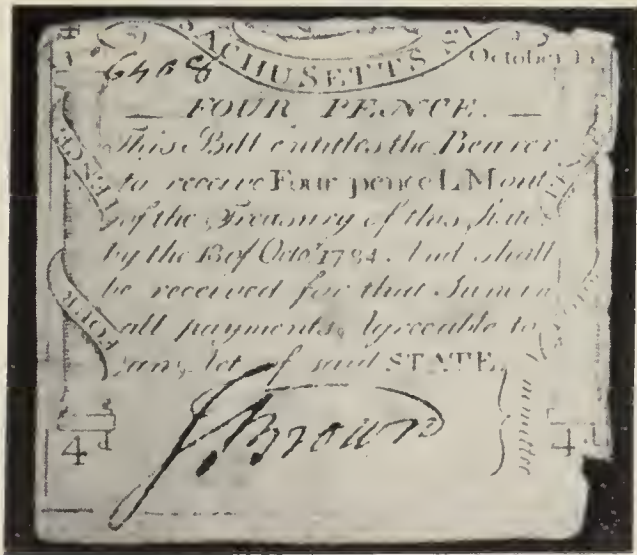 4
MASSACHUSETTS
October 13
6408
FOUR PENCE.
This Bill entitles the Bearer
to receive Four pence L M out
of the Treasury of this State
by the 18 of Octo.r 1784. And shall
be received for that Sum in
all payments, Agreeable to
an Act of said STATE.
PENCE
PENCE
FOUR
FOUR
4d
J. Brown
Committee
4